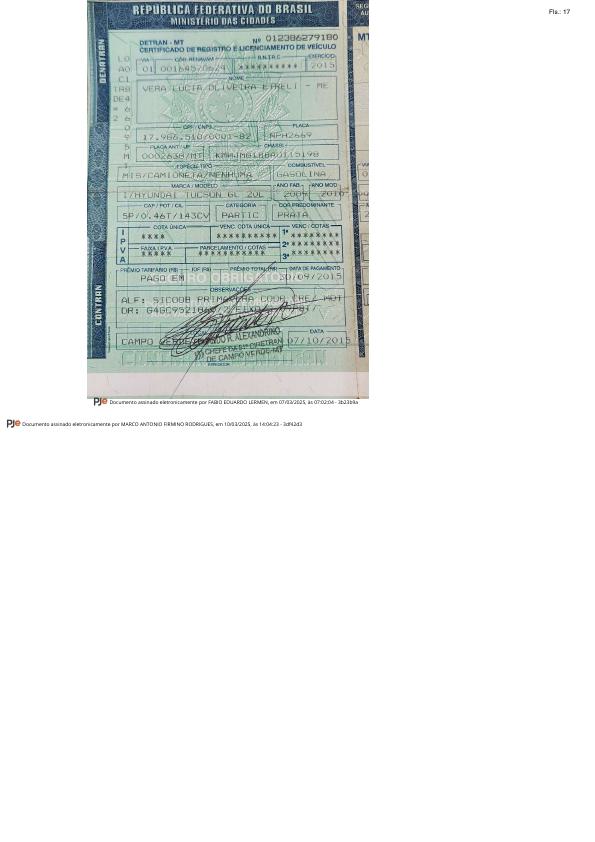 Fls.: 17
REPÚBLICA FEDERATIVA DO BRASIL
MINISTÉRIO DAS CIDADES
DENATRAN
CONTRAN
DETRAN - MT Nº 012386279180
CERTIFICADO DE REGISTRO E LICENCIAMENTO DE VEÍCULO
VIA CÓD. RENAVAM R.N.T.R.C EXERCÍCIO
01 ********** 2015
NOME
VERA LUCIA OLIVEIRA EIRELI - ME
CPF / CNPJ PLACA
17.986.510/0001-82 NPH2669
PLACA ANT / UF CHASSI
0002638/MT
ESPÉCIE TIPO COMBUSTÍVEL
MIS/CAMIONETA/NENHUMA GASOLINA
MARCA / MODELO ANO FAB. ANO MOD.
I/HYUNDAI TUCSON GL 20L 2009 2010
CAP / POT / CIL CATEGORIA COR PREDOMINANTE
5P/0.46T/143CV PARTIC PRATA
IPVA
COTA ÚNICA VENC. COTA ÚNICA VENC / COTAS
**** ********** 1ª ********
FAIXA I.P.V.A. PARCELAMENTO / COTAS 2ª ********
***** *********** 3ª ********
PRÊMIO TARIFÁRIO (R$) IOF (R$) PRÊMIO TOTAL (R$) DATA DE PAGAMENTO
PAGO EM 30/09/2015
OBSERVAÇÕES
ALF: SICOOB PRIMAVERA COOP CRE/ MOT
CAMPO VERDE DATA 07/10/2015
R. ALEXANDRINO
CHEFE DA 51ª CIRETRAN
DE CAMPO VERDE-MT
PJe Documento assinado eletronicamente por FABIO EDUARDO LERMEN, em 07/03/2025, às 07:02:04 - 3b23b9a
PJe Documento assinado eletronicamente por MARCO ANTONIO FIRMINO RODRIGUES, em 10/03/2025, às 14:04:23 - 3df42d3